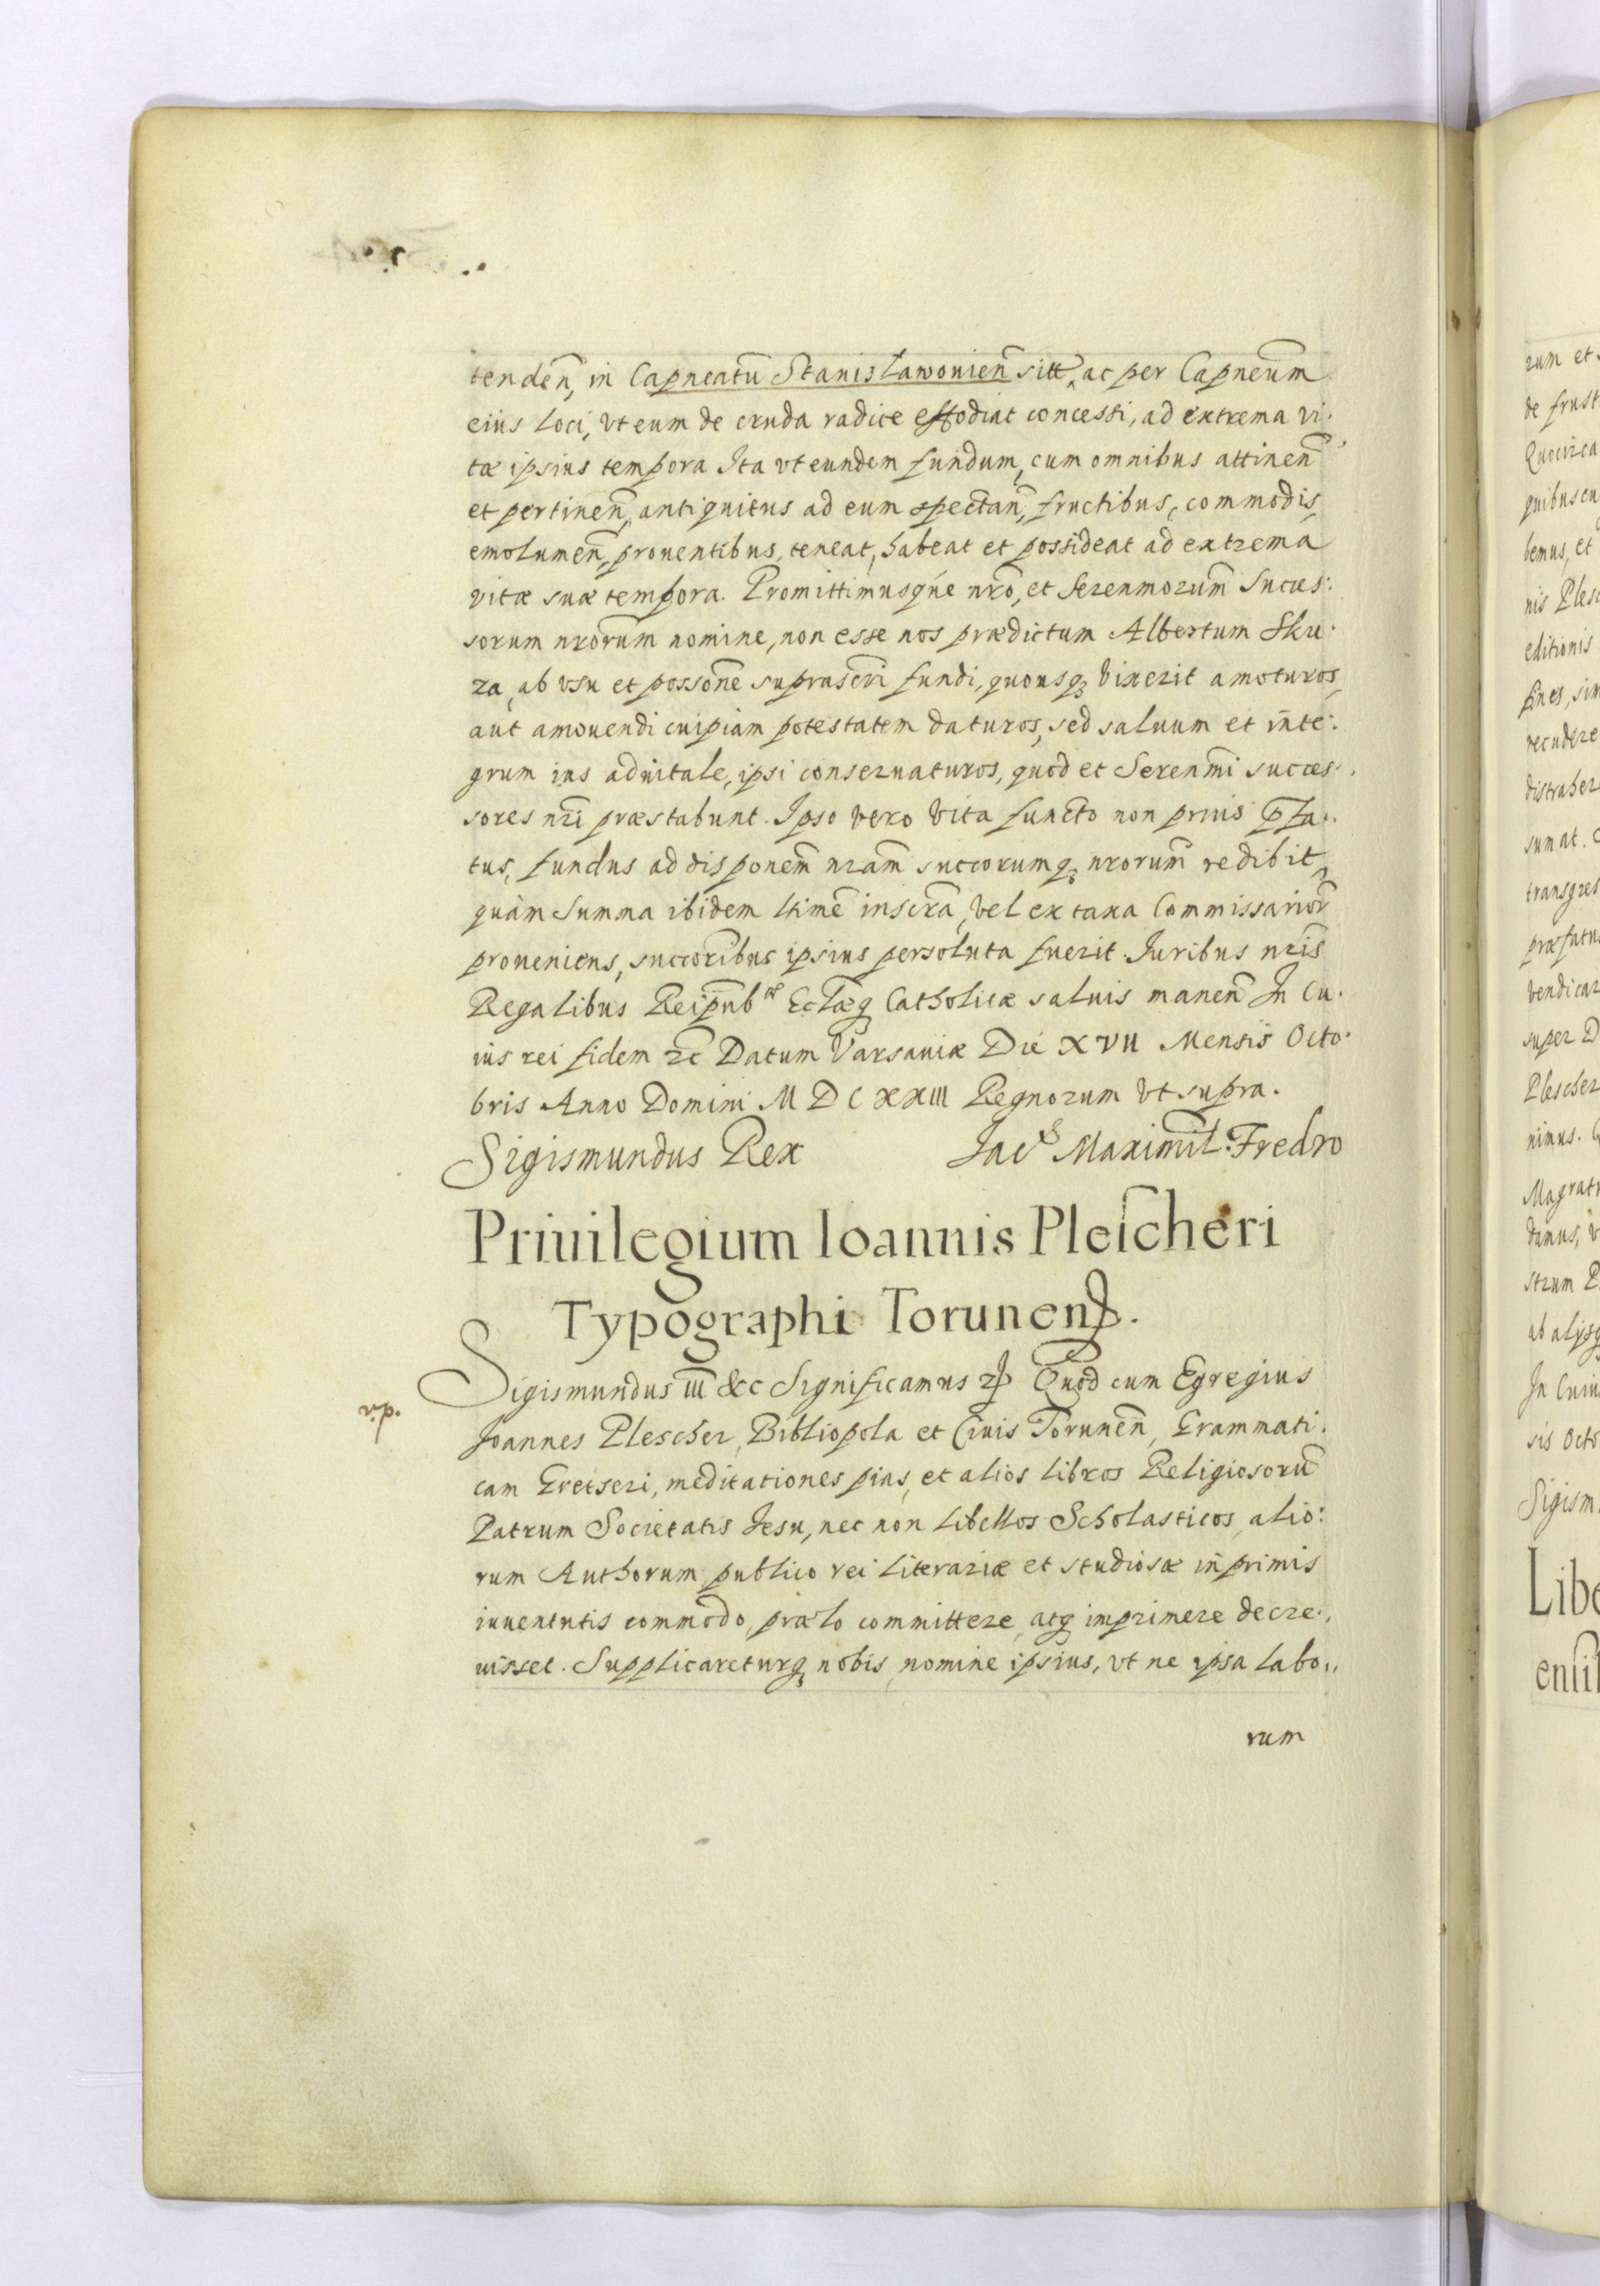 tendeñ, in Capneatũ Stanisławonieñ sitt, ac per Capneum̃
eius loci, vt eum de cruda radice effodiat concessi, ad extrema vi-
tæ ipsius tempora Ita vt eundem fundum, cum omnibus attineñ
et pertineñ, antiquitus ad eum spectañ, fructibus, commodis,
emolumeñ, prouentibus, teneat, habeat et possideat ad extrema
vitæ suæ tempora. Promittimusque nrõ, et Serenmorum̃ Succes:
sorum nrorum̃ nomine, non esse nos prædictum Albertum Sku-
za, ab vsu et possone suprascri fundi, quousq3 vixerit amoturos,
aut amouendi cuipiam potestatem daturos, sed saluum et inte:
grum ius aduitale, ipsi conseruaturos, quod et Serenmi succes-
sores nri præstabunt. Ipso vero vita functo non prius p̃fa-
tus, fundus ad disponem̃ nram̃ succorumq3 nrorum̃ redibit,
quàm Summa ibidem ltimẽ inscra, vel ex taxa Commissarior̃
proueniens, succoribus ipsius persoluta fuerit. Iuribus nris̃
Regalibus Reipub: Ecclæq3 Catholicæ saluis maneñ In cu-
ius rei fidem etc̃ Datum Varsauiæ Die XVII Mensis Octo-
bris Anno Domini M D C XXIII Regnorum vt supra.
Sigismundus Rex Jac: Maximil: Fredro
Priuilegium Ioannis Plescheri
Typographi Torunens.
Sigismundus III &c Significamus etc Quod cum Egregius
vid.
Joannes Plescher, Bibliopola et Ciuis Toruneñ, Grammati-
cam Gretseri, meditationes pias, et alios libros Religiosorũ
Patrum Societatis Jesu, nec non libellos Scholasticos, alio:
rum Authorum publico rei literariæ et studiosæ in primis
iuuentutis commodo, prælo committere, atq3 imprimere decre-
uisset. Supplicareturq3 nobis nomine ipsius, vt ne ipsa labo-
rum